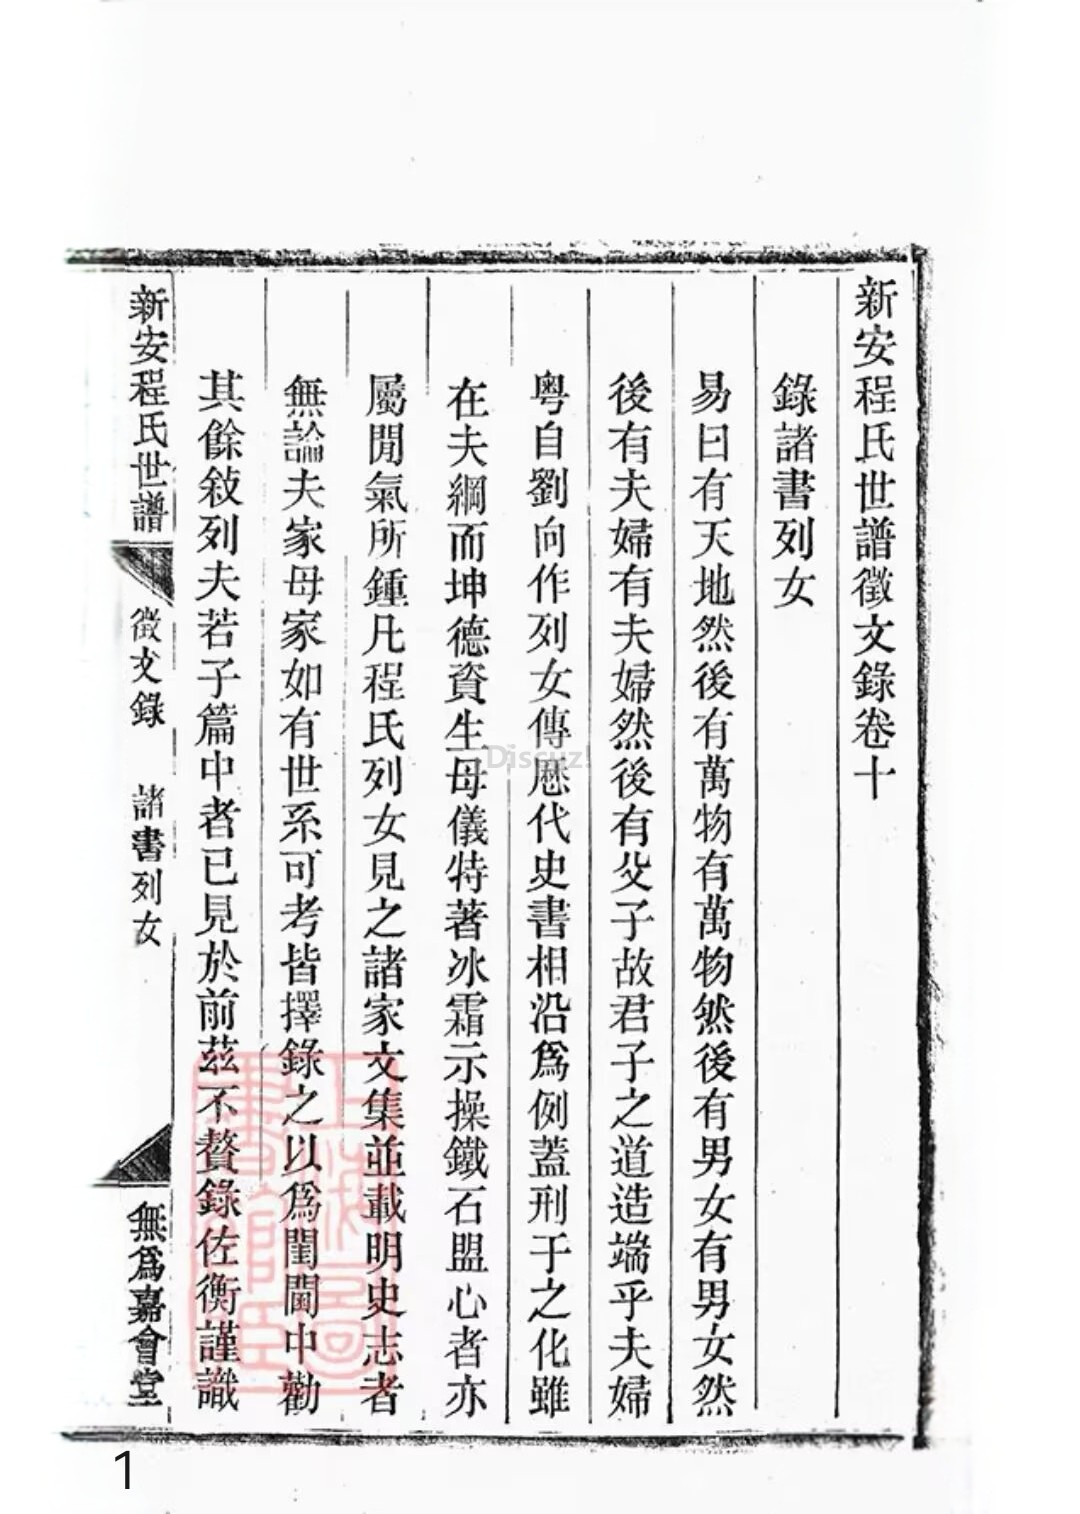 新安程氏世譜徵文錄卷十
錄諸書列女
易曰有天地然後有萬物有萬物然後有男女有男女然
後有夫婦有夫婦然後有父子故君子之道造端乎夫婦
粵自劉向作列女傳歷代史書相沿爲例蓋刑于之化雖
在夫綱而坤德資生母儀特著冰霜示操鐵石盟心者亦
屬閒氣所鍾凡程氏列女見之諸家文集並載明史志者
無論夫家母家如有世系可考皆擇錄之以爲閨閫中勸
其餘敍列夫若子篇中者已見於前茲不贅錄佐衡謹識
新安程氏世譜
徵文錄
諸書列女
無爲嘉會堂
上海圖
書館臧
Discuz!
1